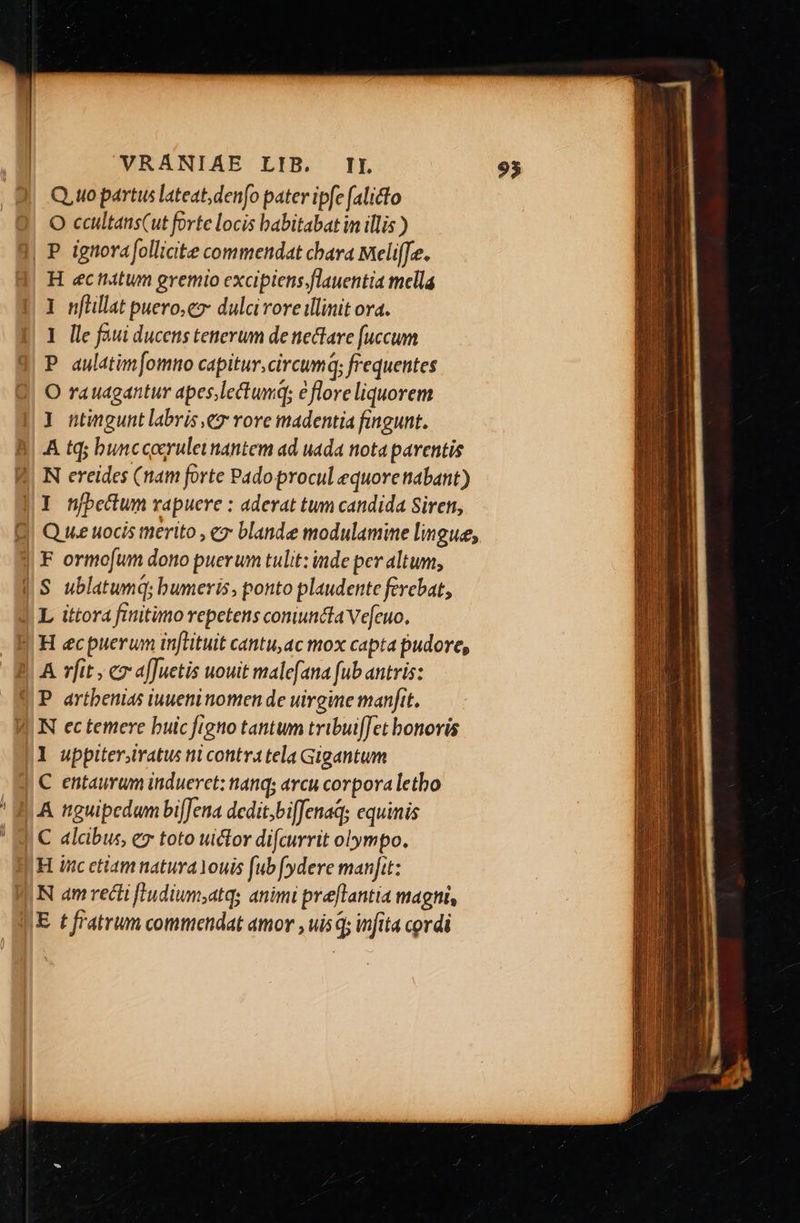 VRANIAE LIB. II. 93
Q uo partus lateat,denſo pater ipſe ſalicto
O ccultans(ut forte locis habitabat in illis )
P ignora ſollicitæ commendat chara Meliſſæ.
H æc natum gremio excipiens,flauentia mella
I nſtillat puero,& dulci rore illinit ora.
I lle faui ducens tenerum de nectare ſuccum
P aulatim ſomno capitur,circumq; frequentes
O rauagantur apes,lectumq; è flore liquorem
I ntingunt labris,& rore madentia fingunt.
A tq; hunc cœrulei nantem ad uada nota parentis
N ereides (nam forte Pado procul æquore nabant)
I nſpectum rapuere : aderat tum candida Siren,
Q uæ uocis merito , & blandæ modulamine linguæ,
F ormoſum dono puerum tulit: inde per altum,
S ublatumq; humeris, ponto plaudente ferebat,
L ittora finitimo repetens coniuncta Veſeuo.
H æc puerum inſtituit cantu,ac mox capta pudore,
A rſit , & aſſuetis uouit maleſana ſub antris:
P arthenias iuueni nomen de uirgine manſit.
N ec temere huic ſigno tantum tribuiſſet honoris
I uppiter,iratus ni contra tela Gigantum
C entaurum indueret: nanq; arcu corpora letho
A nguipedum biſſena dedit,biſſenaq; equinis
C alcibus, & toto uictor diſcurrit olympo.
H inc etiam natura Iouis ſub ſydere manſit:
N am recti ſtudium,atq; animi præſtantia magni,
E t fratrum commendat amor , uis q; inſita cordi